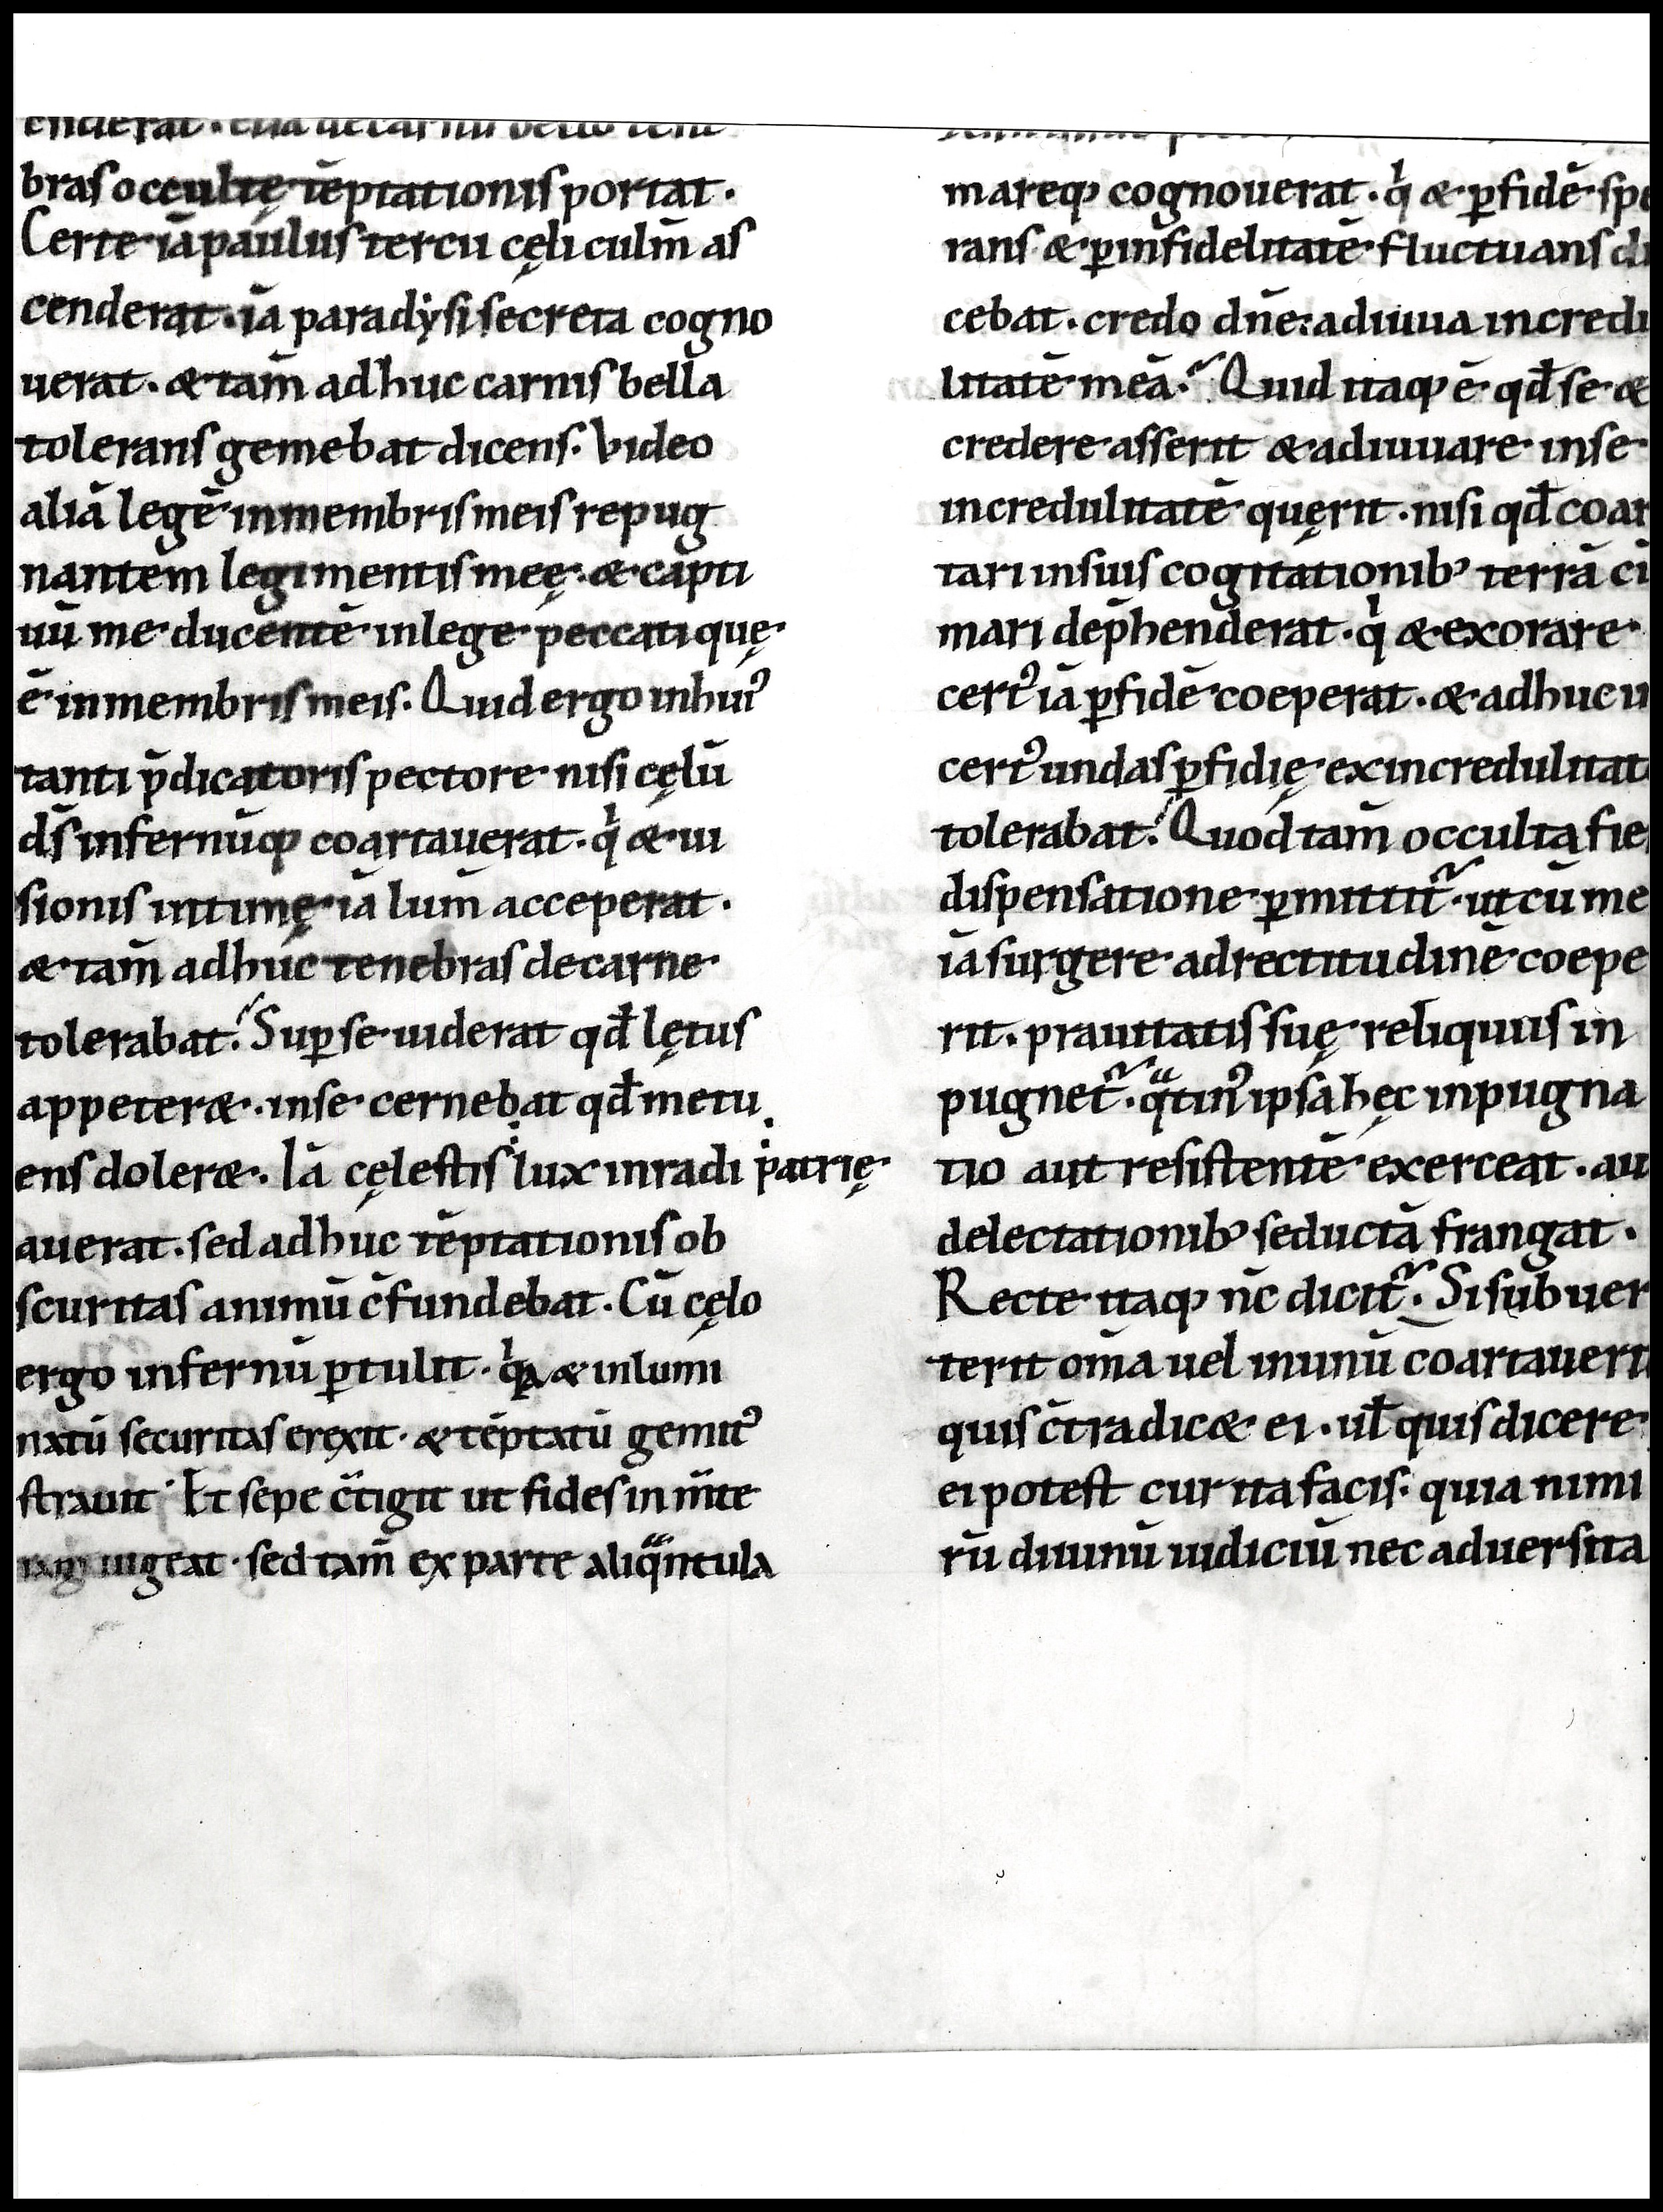 bras occultę tēptationis portat.
Certe iā paulus tercii cęli culm̄ as
cenderat. iā paradẏsi secreta cogno
uerat. & tam̄ adhuc carnis bella
tolerans gemebat dicens. Video
aliā legē in membris meis repug
nantem legi mentis meę. & capti
uū me ducentē in lege peccati quę
ē in membris meis. Quid ergo in huiꝰ
tanti p̄dicatoris pectore nisi cęlū
d̄s infernūq; coartauerat. qͥ & ui
sionis intimę iā lum̄ acceperat.
& tam̄ adhuc tenebras de carne
tolerabat. Suꝑ se uiderat qđ lętus
appeter&. in se cernebat qđ metu
ens doler&. Iā cęlestis lux inradi patrię
auerat. sed adhuc tēptationis ob
scuritas animū c̄fundebat. Cū cęlo
ergo infernū ꝑtulit. qͥa & inlumi
natū securitas erexit. & tēptatū gemitꝰ
strauit. Et sepe c̄tigit ut fides in m̄te
iam uigeat. sed tam̄ ex parte aliqͣntula
mareq; cognouerat. qͥ & ꝑ fidē spe
rans & ꝑ infidelitatē fluctuans di
cebat. credo dn̄e: adiuua incredi
litatē meā. Quid itaq; ē qđ se &
credere asserit & adiuuare in se
incredulitatē quęrit. nisi qđ coar
tari in suis cogitationibꝰ terrā cū
mari dep̄henderat. qͥ & exorare
certꝰ iā ꝑ fidē coeperat. & adhuc in
certꝰ undas ꝑfidię ex incredulitate
tolerabat. Quod tam̄ occulta fie
dispensatione ꝑmittit᷑. ut cū me
iā surgere ad rectitudinē coepe
rit. prauitatis suę reliquiis in
pugnet᷑. qͣtinꝰ ipsa hęc inpugna
tio aut resistentē exerceat. au
delectationibꝰ seductā frangat.
Recte itaq; nc̄ dicit᷑. Si subuer
terit om̄a uel in unū coartauerit
quis c̄tradic& ei. uł quis dicere
ei potest cur ita facis. quia nimi
rū diuinū iudiciū nec aduersita